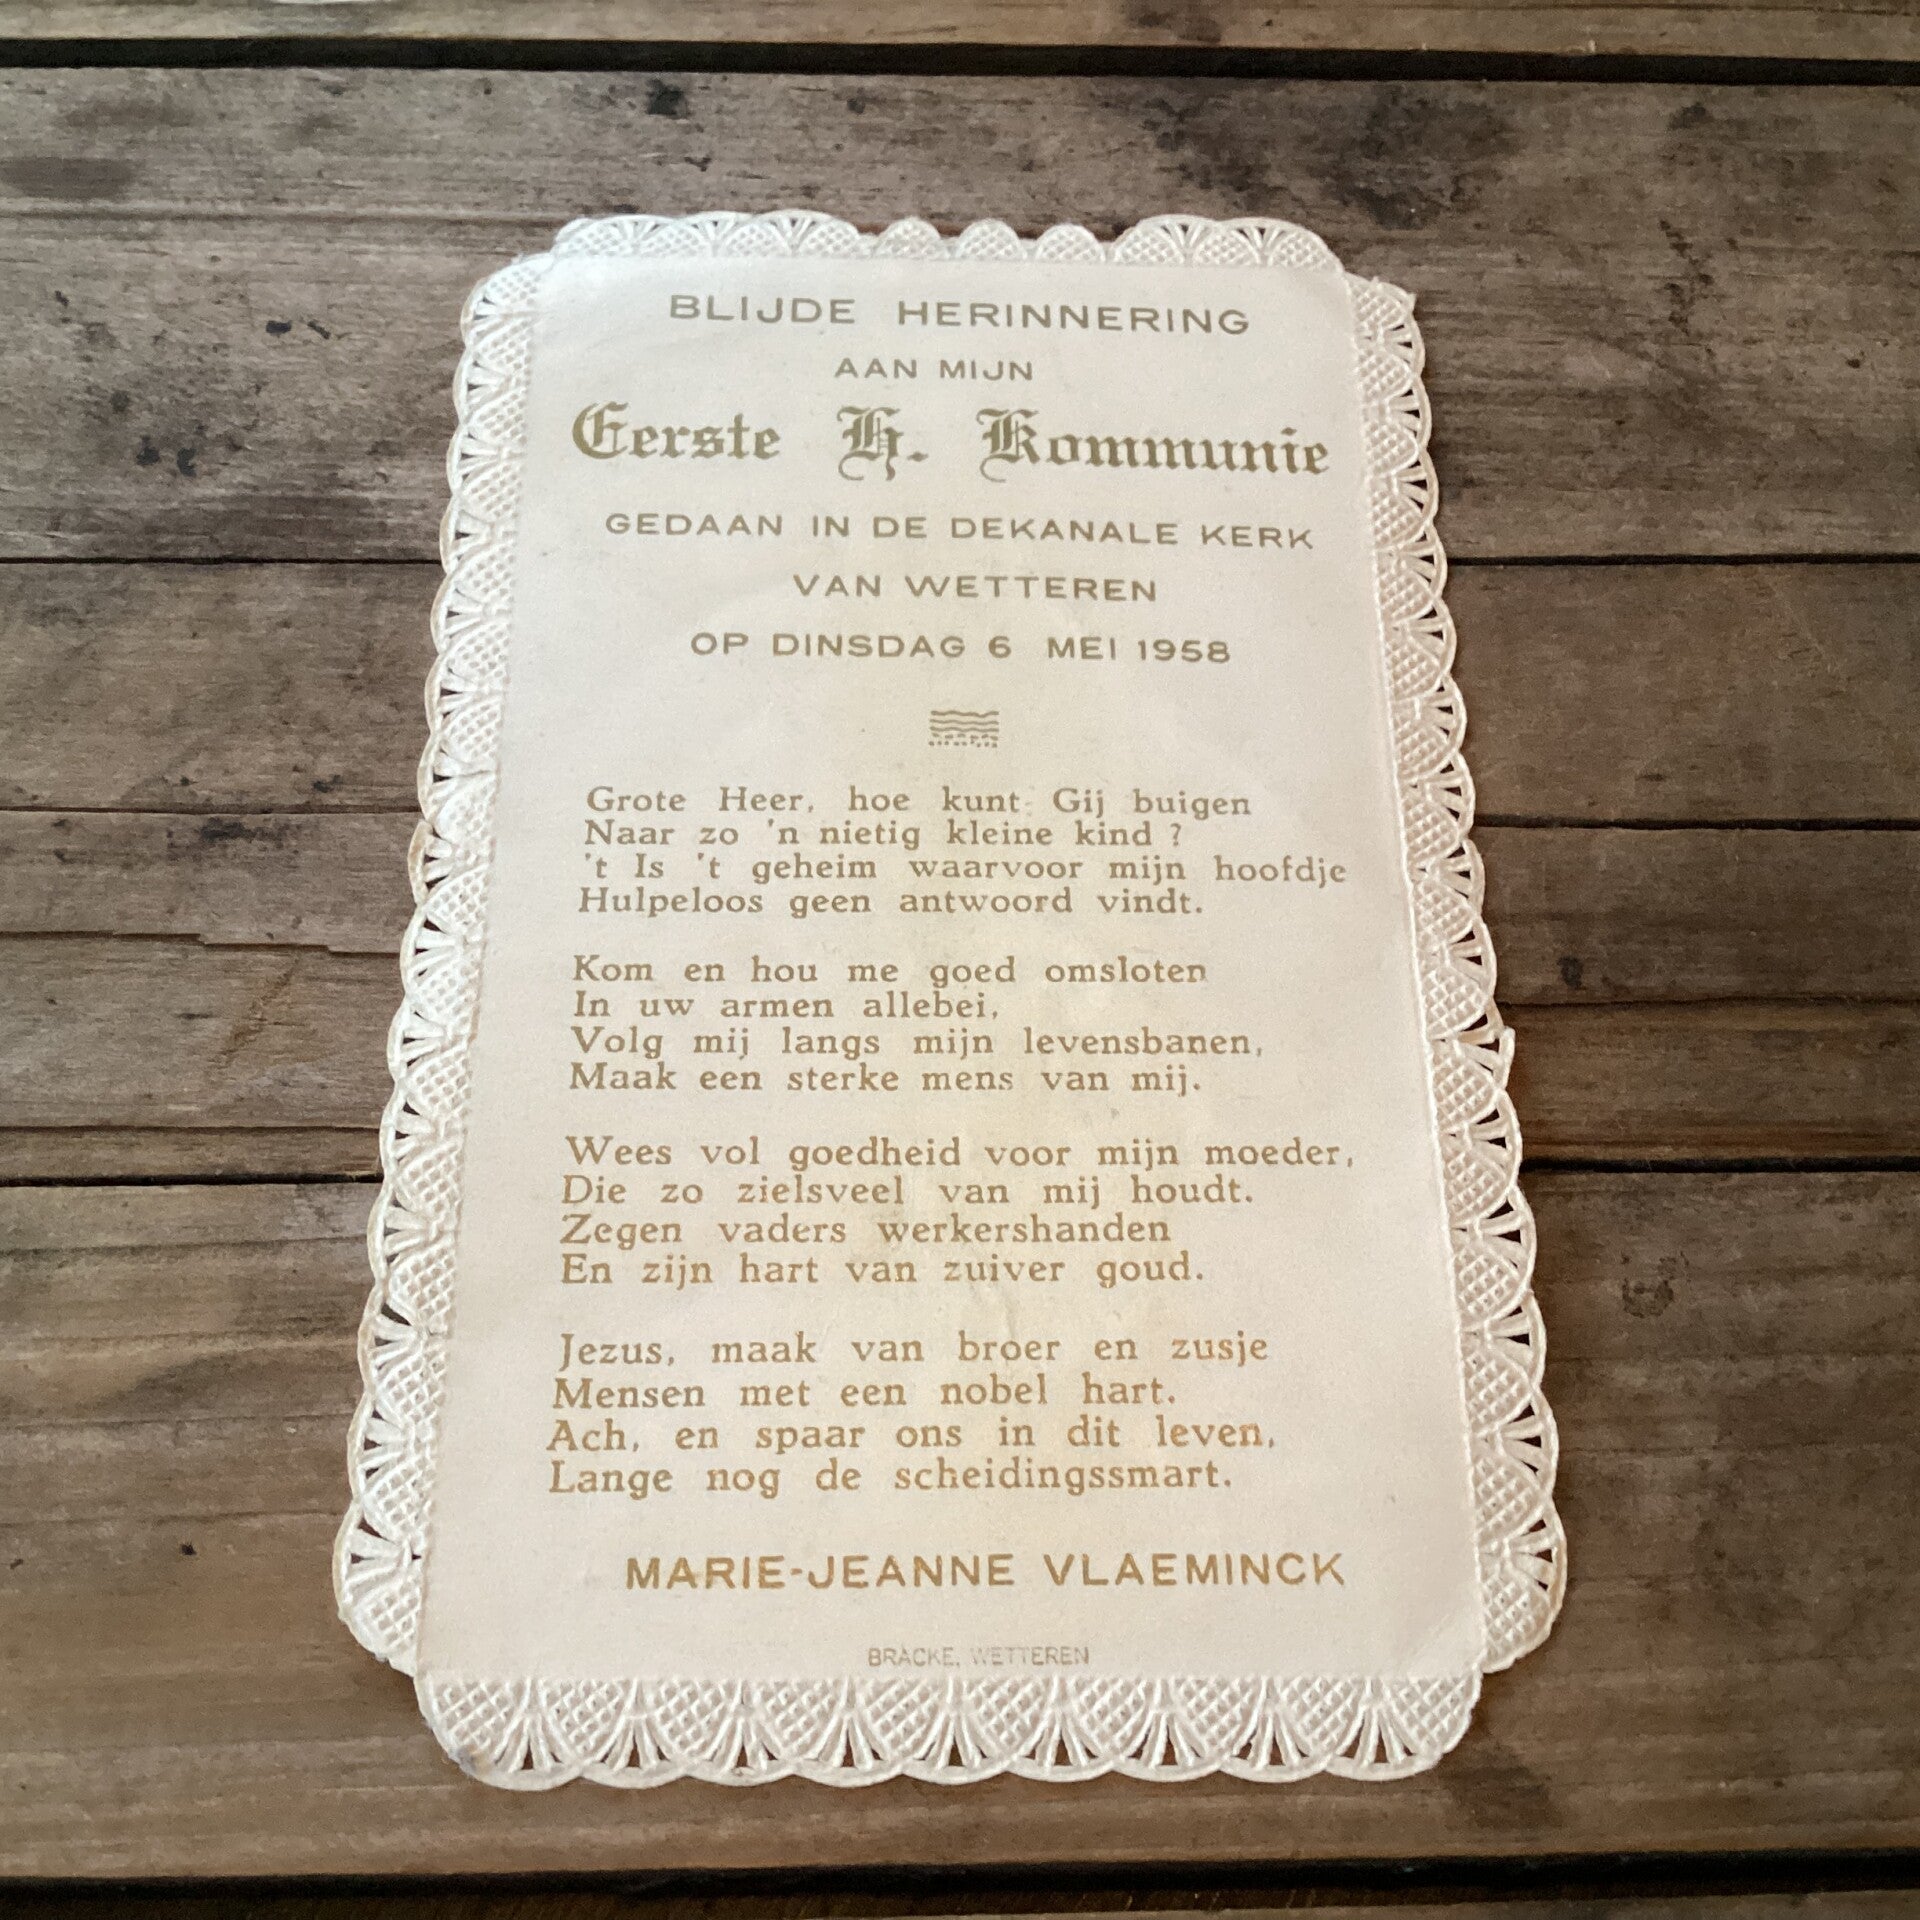 BLIJDE HERINNERING
AAN MIJN
Eerste H. Kommunie
GEDAAN IN DE DEKANALE KERK
VAN WETTEREN
OP DINSDAG 6 MEI 1958
Grote Heer, hoe kunt Gij buigen
Naar zo 'n nietig kleine kind ?
't Is 't geheim waarvoor mijn hoofdje
Hulpeloos geen antwoord vindt.
Kom en hou me goed omsloten
In uw armen allebei,
Volg mij langs mijn levensbanen,
Maak een sterke mens van mij.
Wees vol goedheid voor mijn moeder,
Die zo zielsveel van mij houdt.
Zegen vaders werkershanden
En zijn hart van zuiver goud.
Jezus, maak van broer en zusje
Mensen met een nobel hart.
Ach, en spaar ons in dit leven,
Lange nog de scheidingssmart.
MARIE-JEANNE VLAEMINCK
BRACKE, WETTEREN